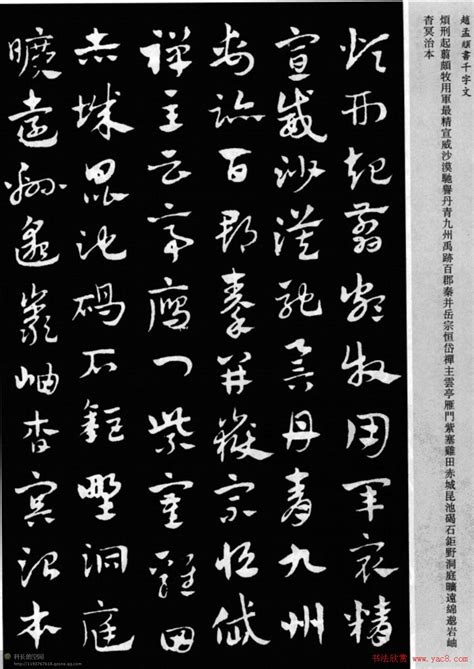 趙孟頫書千字文
煩刑起翦頗牧用軍最精宣威沙漠馳譽丹青九州禹跡百郡秦并岳宗恒岱禪主雲亭雁門紫塞雞田赤城昆池碣石鉅野洞庭曠遠綿邈岩岫
杳冥治本
煩刑起翦頗牧用軍最精
宣威沙漠馳譽丹青九州
禹跡百郡秦并嶽宗恒岱
禪主云亭雁門紫塞雞田
赤城昆池碣石鉅野洞庭
曠遠綿邈巖岫杳冥治本
科长的空间
书法欣赏 www.yac8.com